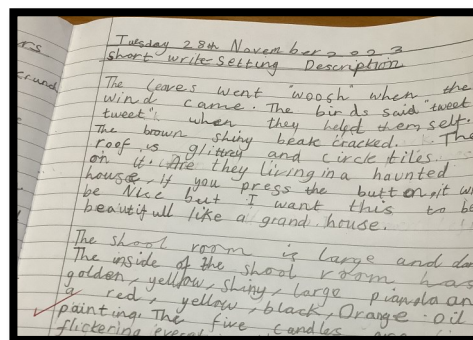 rs
Tuesday 28th November 2023
short write-Setting Description
The leaves went "woosh" when the
wind came. The birds said "tweet
tweet" when they heled themself.
The brown shiny beak cracked. The
roof is glittrey and circle tiles
on it. Are they living in a haunted
house. If you press the button, it wi
be Nice but I want this to be
beautifull like a grand house.
The shool room is large and da
The inside of the shool room has
golden, yellow, shiny, large pianola an
a red, yellow, black, Orange oil
painting. The five candles are
flickering